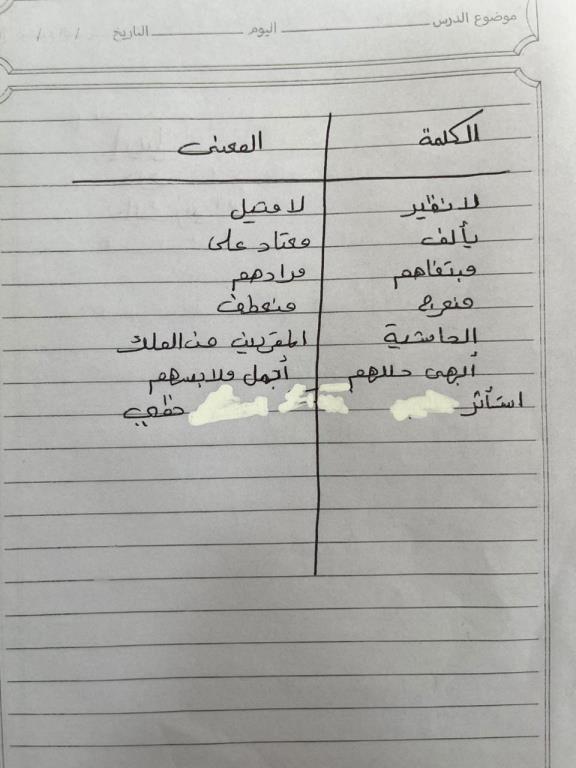 موضوع الدرس اليوم التاريخ / /
الكلمة المعنى
لا نظير لا مثيل
يألف معتاد على
مبتغاهم مرادهم
منعرج منعطف
الحاشية المقربين من الملك
أبهى حللهم أجمل ملابسهم
استأثر حظي